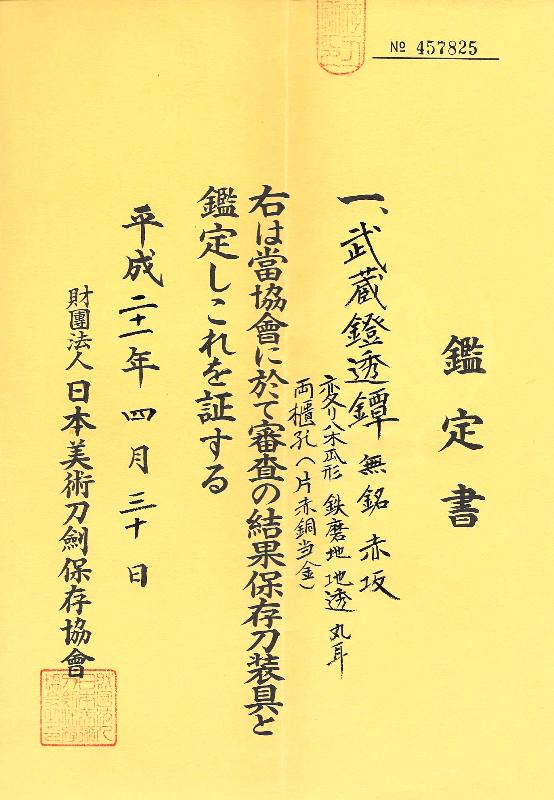 № 457825
鑑定書
一、武蔵鐙透鐔 無銘 赤坂
変り八木瓜形 鉄磨地 地透 丸耳
両櫃孔(片赤銅当金)
右は當協會に於て審査の結果保存刀装具と
鑑定しこれを証する
平成二十一年四月三十日
財團法人日本美術刀劍保存協會